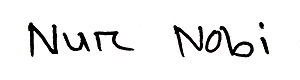 Nur Nobi